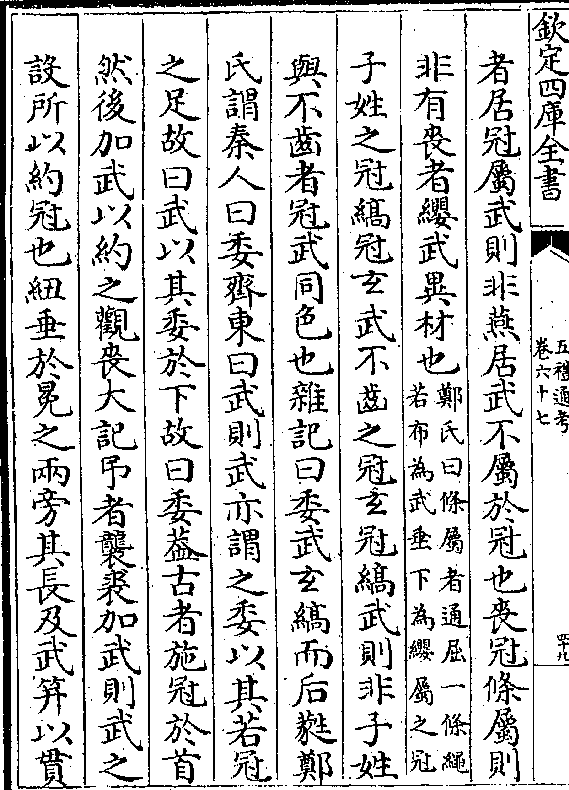 欽定四庫全書
五禮通考
卷六十七
四十九
者居冠屬武則非燕居武不屬於冠也喪冠條屬則
非有喪者纓武異材也
鄭氏曰條屬者通屈一條繩
若布為武垂下為纓屬之冠
子姓之冠縞冠玄武不齒之冠玄冠縞武則非子姓
與不齒者冠武同色也雜記曰委武玄縞而后蕤鄭
氏謂秦人曰委齊東曰武則武亦謂之委以其若冠
之足故曰武以其委於下故曰委葢古者施冠於首
然後加武以約之觀喪大記弔者襲裘加武則武之
設所以約冠也紐垂於冕之兩旁其長及武筓以貫